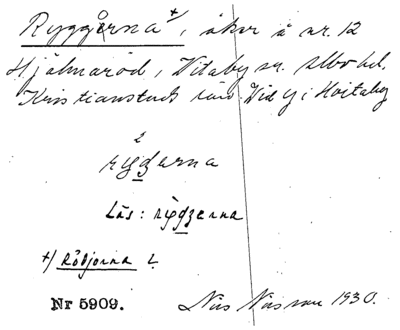 Ryggårna +), åker å nr. 12
Hjälmaröd, Vitaby sn. Albo hd.
Kristianstads län. Vid y i Hvitaby
2
rygerna
Läs: rygerna
+) Rödjorna L.
Nr 5909.
Nils Nilsson 1930.